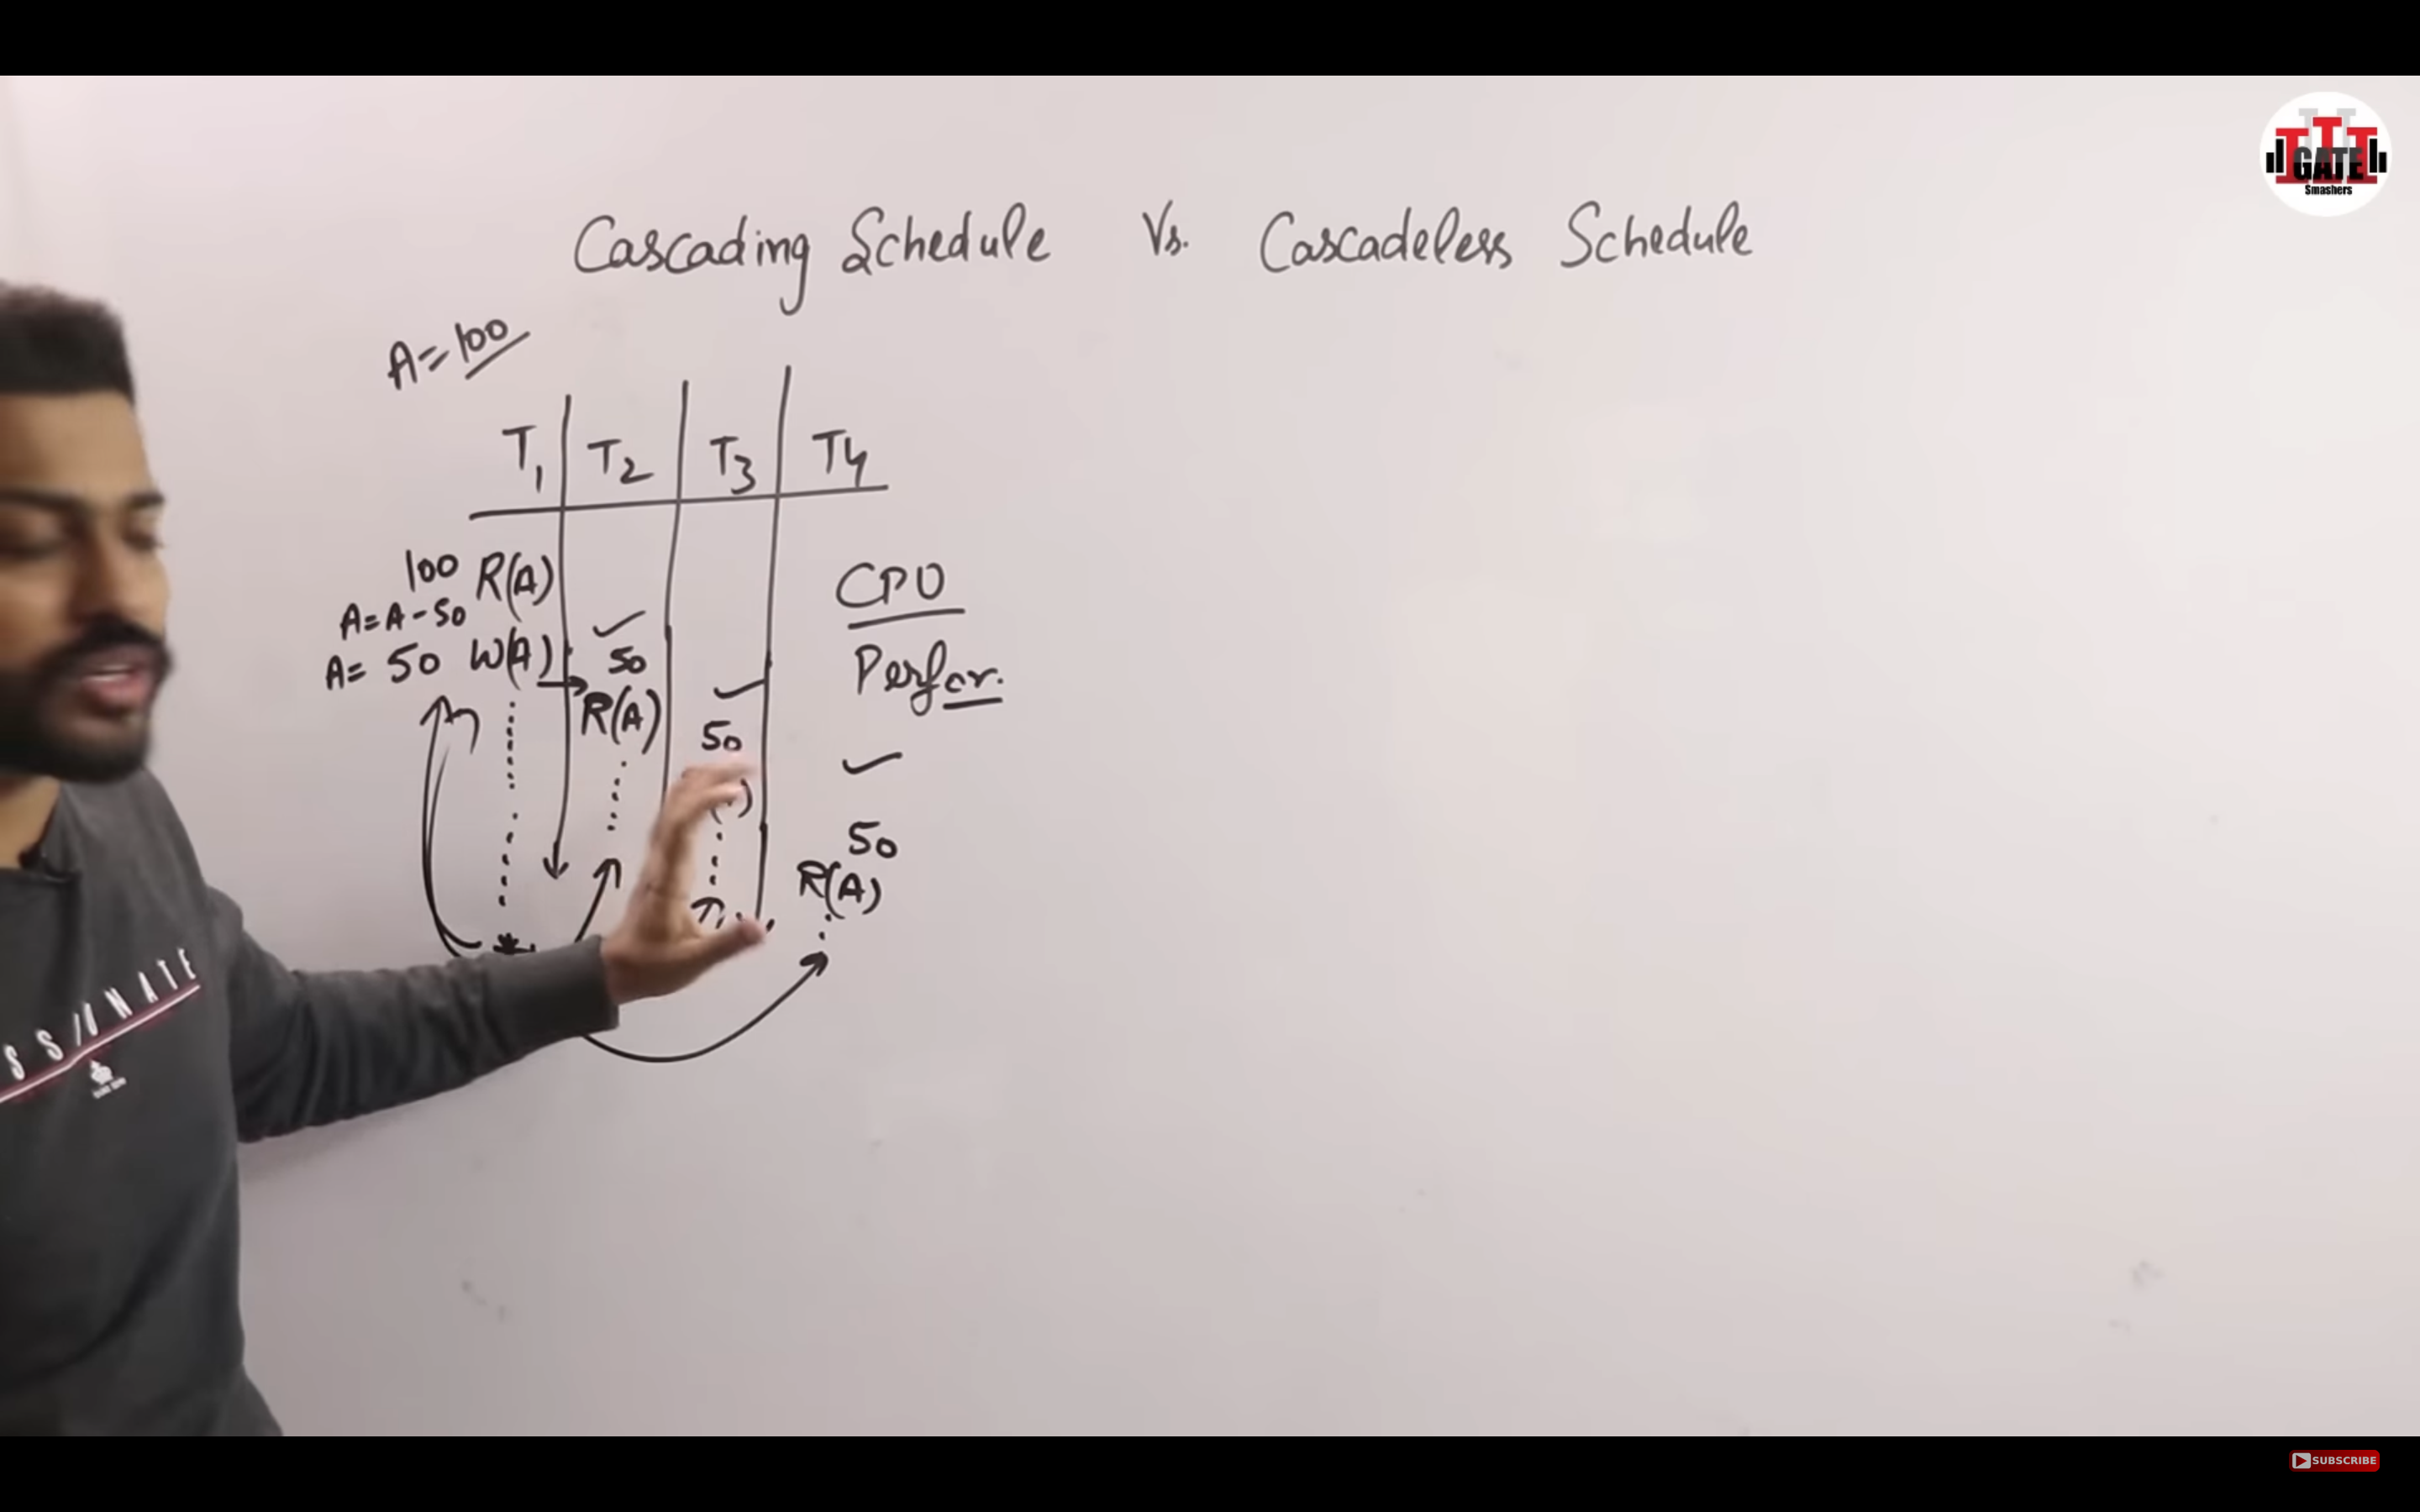 GATE
Smashers
Cascading Schedule Vs. Cascadeless Schedule
A=100
T1 T2 T3 T4
100 R(A)
A=A-50
A= 50 W(A)
50
R(A)
50
CPU
Perfor.
50
R(A)
SSINATE
SUBSCRIBE